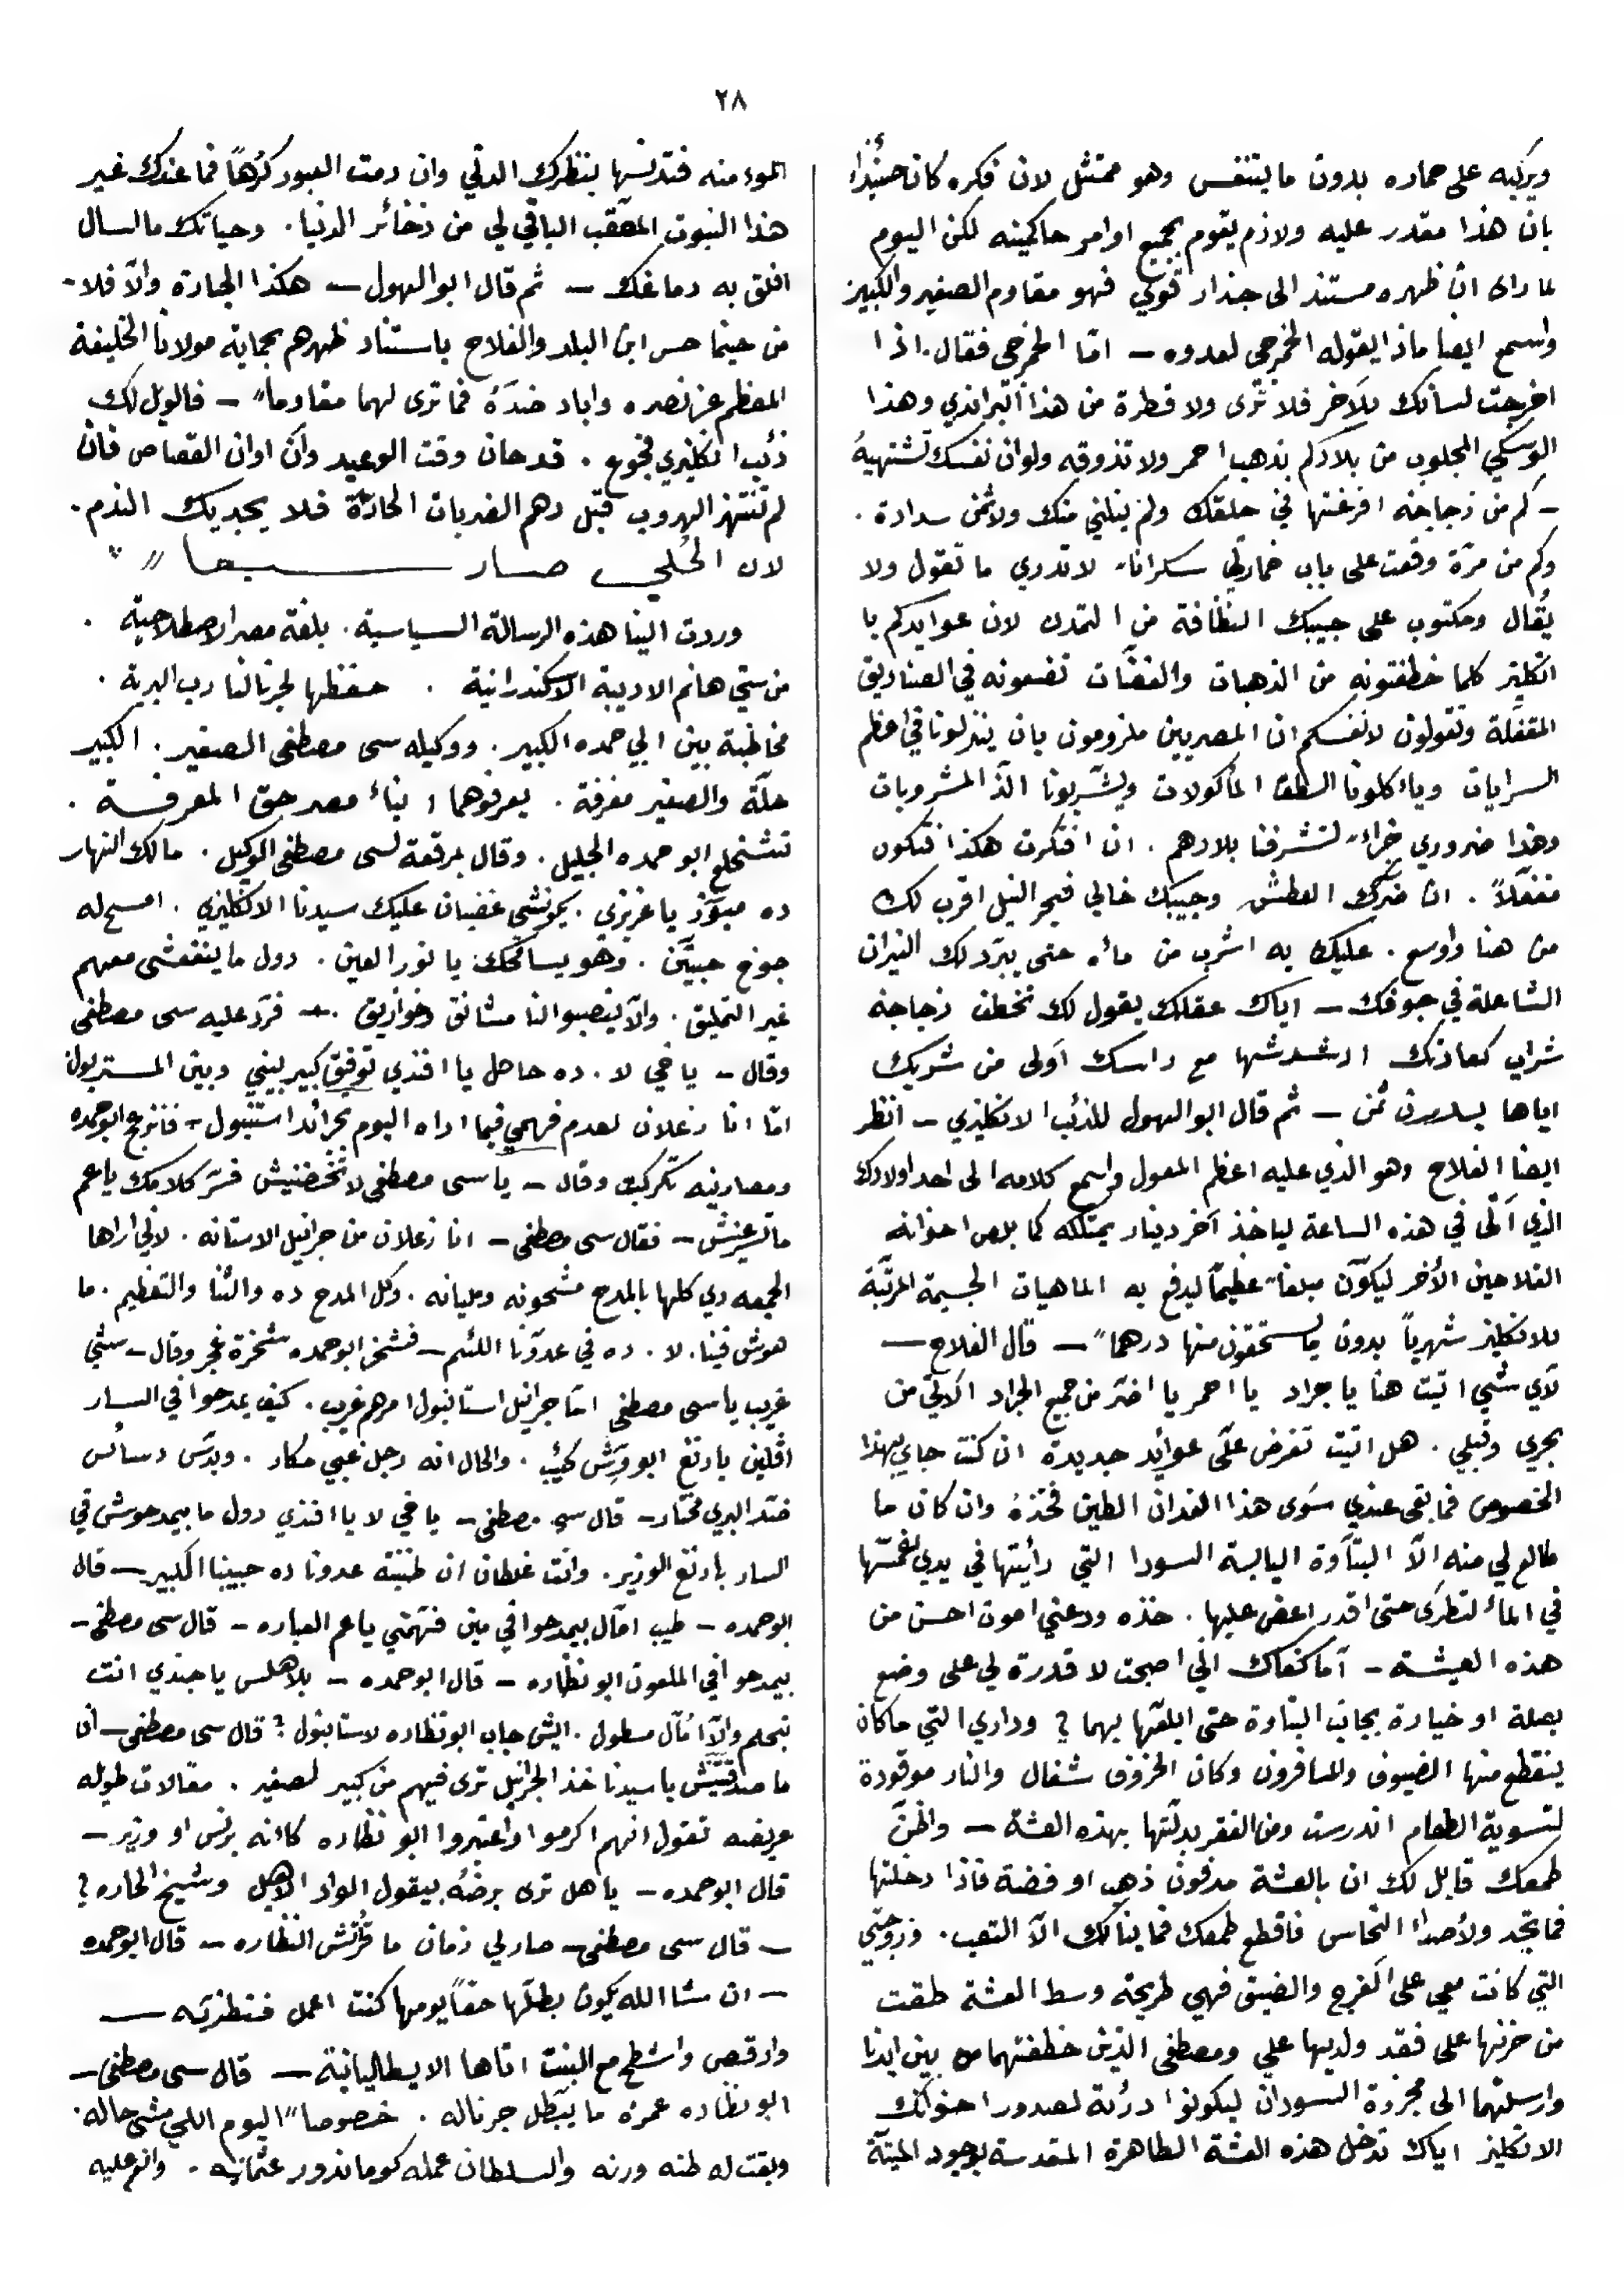 ٢٨
ويركبه على حماره بدون ما يتنفس وهو ممتثل لان فكره كان حينئذٍ
بان هذا مقدر عليه ولازم يقوم بجميع اوامر حاكمينه لكن اليوم
لما راى ان ظهره مستند الى جدار قوي فهو مقاوم الصغير والكبير
واسمع ايضا ماذا يقوله الخمرجي لعدوه ــ امّا الخمرجي فقال . اذا
اخرجت لسانك للآخر فلا ترى ولا قطرة من هذا البراندي وهذا
الوسكي المجلوب من بلادكم بذهب احمر ولا تذوقه ولو ان نفسك تشتهيهُ
ــ كم من زجاجة افرغتها في حلقك ولم ينلني منك ولا ثمن سدادة .
وكم من مرّة وقعت على باب خمارتي سكرانا لا تدري ما تقول ولا
يُقال ومكتوب على جبيبك النظافة من التمدن لان عوايدكم يا
انكليز كلما خطفتونه من الذهبات والفضّات تضعونه في الصناديق
المقفّلة وتقولون لانفسكم ان المصريين ملزومون بان ينزلونا في اعظم
السرايات وياءكلونا الطف المأكولات ويشّربونا الذّ المشروبات
وهذا ضروري جزاء لتشرفنا بلادهم . ان افتكرت هكذا فتكون
مغفّلاً . ان ضرّك العطش وجيبك خالي فبحر النيل اقرب لك
من هنا واوسع . عليك به اشرب من مائه حتى يبرّد لك النيران
الشاعلة في جوفك ــ اياك عقلك يقول لك تخطف زجاجة
شراب كعادتك ادشدشها مع راسك اَولى من شربك
اياها بدون ثمن ــ ثم قال ابو الهول للذئب الانكليزي ــ انظر
ايضا الفلاح وهو الذي عليه اعظم المعول واسمع كلامه الى احد اولادك
الذي اتى في هذه الساعة لياخذ آخر دينار يمتلكه كما بلص اخوانه
الفلاحين الأخر ليكوّن مبلغا عظيماً ليدفع به الماهيات الجسيمة المرتبّة
للانكليز شهرياً بدون ما يستحقون منها درهما ــ قال الفلاح ــ
لاَي شيء اتيت هنا يا جراد يا احمر يا اضر من جميع الجراد الاتي من
بحري وقبلي . هل اتيت تفرض علَى عوائد جديدة ان كنت جاي بهذا
الخصوص فما بقى عندي سَوى هذا الفدان الطين فخذهُ وان كان ما
طالع لي منه الاّ البتّاوة اليابسة السودا التي رأيتها في يدي لغمّسها
في الماء لتطرَى حتى اقدر اعض عليها . خذه ودعني اموت احسن من
هذه العيشة ــ أما كفاك اني اصبحت لا قدرة لي على وضع
بصلة او خيارة بجانب البتاوة حتى ابلعها بهما ؟ وداري التي ما كان
ينقطع منها الضيوف والمسافرون وكان الخروف شغال والنار موقودة
لتسوية الطعام اندرست ومن الفقر بدلّتها بهذه العشة ــ واظنّ
طمعك قايل لك ان بالعشة مدفون ذهب او فضة فاذا دخلتها
فما تجد ولا صداء النحاس فاقطع طمعك فما ينالك الاّ التعب . وزوجتي
التي كانت معي على الفرج والضيق فهي طريحة وسط العشة طقت
من حزنها على فقد ولديها علي ومصطفى الذين خطفتهما من بين ايدينا
وارسلتهما الى مجزرة السودان ليكونوا درئة لصدور اخوانك
الانكليز اياك تدخل هذه العشة الطاهرة المقدسة بوجود الميتة
المومنه فتدنسها بنظرك الدني وان رمت العبور كرُهاً فما عندك غير
هذا النبوت المعقّب الباقي لي من ذخائر الدنيا . وحياتك ما اسال
افلق به دماغك ــ ثم قال ابو الهول ــ هكذا الجدارة والاّ فلا ــ
فن حيثما حس ابن البلد والفلاح باستناد ظهرهم بحماية مولانا الخليفة
المعظم عز نصره واباد ضدَهُ فما ترى لهما مقاوماً ــ فالويل لك
ذئب انكليزي فجوع . قد حان وقت الوعيد وآن اوان القصاص فان
لم تنتهز الهروب قبل دهم الضربات الحادّة فلا يجديك الندم .
لان الحُلي صار سبعا ״
وردت الينا هذه الرسالة السياسية . بلغة مصر الاصطلاحية .
من ستي هانم الاديبة الاسكندرانية . حفظها لجرنالنا رب البرية .
مخاطبة بين ابي حمده الكبير . ووكيله سى مصطفى الصغير . الكبير
حلّة والصغير مغرفة . يعرفوهما ابناء مصر حق المعرفة .
تشنحلع ابو حمده الجليل . وقال برقعة لسى مصطفى الوكيل . مالك النهار
ده مبوّز يا عزيزي . يكونشي غضبان عليك سيدنا الانكليزي . امسح له
جوخ حبتّين . وهو يسامحك يا نور العين . دول ما ينفعشى معهم
غير التمليق . والاّ ينصبوا لنا مشانق وخوازيق . ــ فردّ عليه سى مصطفى
وقال ــ يا خي لا . ده حاصل يا افندي توفيق كبير بيني وبين المستر بول
امّا انا زعلان لعدم فهمي فيما اراه اليوم بجرائد استنبول ــ فانزعج ابو حمده
ومصارينه تكركبت وقال ــ يا سى مصطفى لا تخضنيش فسّر كلامك يا عم
ماتسرعنيش ــ فقال سى مصطفى ــ انا زعلان من جرانيل الاستانه . لاني اراها
الجمعه دي كلها بالمدح مشحونه ومليانه . وكل المدح ده والثنا والتعظيم . ما
هوش فينا . لا . ده في عدوّنا اللئيم ــ فشخر ابو حمده شخرة غجر وقال ــ شئ
غريب يا سى مصطفى امّا جرانيل استانبول امرهم غريب . كيف يمدحوا في السار
افلين بارنغ ابو ورَش كئيب . والحال انه رجل غبي مكار . وبدّس دسائس
ضد الغازي مختار ــ قال سي مصطفى ــ يا خي لا يا افندي دول ما بيمدحوش في
السار بارنغ الوزير . وانت غلطان ان ظنيّته عدونا ده حبيبنا الكبير ــ قال
ابو حمده ــ طيب امّال بيمدحوا في مين فهّمني يا عم العباره ــ قال سى مصطفى ــ
بيمدحوا في الملعون ابو نظّاره ــ قال ابو حمده ــ بلا هلس يا جندي انت
تبحلم والاّ امّال مسطول . ايش جاب ابو نظاره لاستانبول ؟ قال سى مصطفى ــ ان
ما صدقتّنيش يا سيدنا خذ الجرانيل ترى فيهم من كبير لصغير . مقالات طويله
عريضه تقول انهم اكرموا واعتبروا ابو نظاره كاءنه برنس او وزير ــ
قال ابو حمده ــ يا هل ترى برضُه بيقول الواد الاهبل وشيخ الحاره ؟
ــ قال سى مصطفى ــ صار لي زمان ما قرُتش النظاره ــ قال ابو حمده
ــ ان شا الله يكون بطلّها حقاً يومها كنت اعمل فنطزيّه ــ
وارقص واشطح مع البنت اتاها الايطاليانية ــ قال سى مصطفى ــ
ابو نظاره عمره ما يبّطل جرناله . خصوصاً اليوم اللي مشى حاله .
وبقت له طنه ورنه والسلطان عمله كوماندور عثمانيه . وانعم عليه